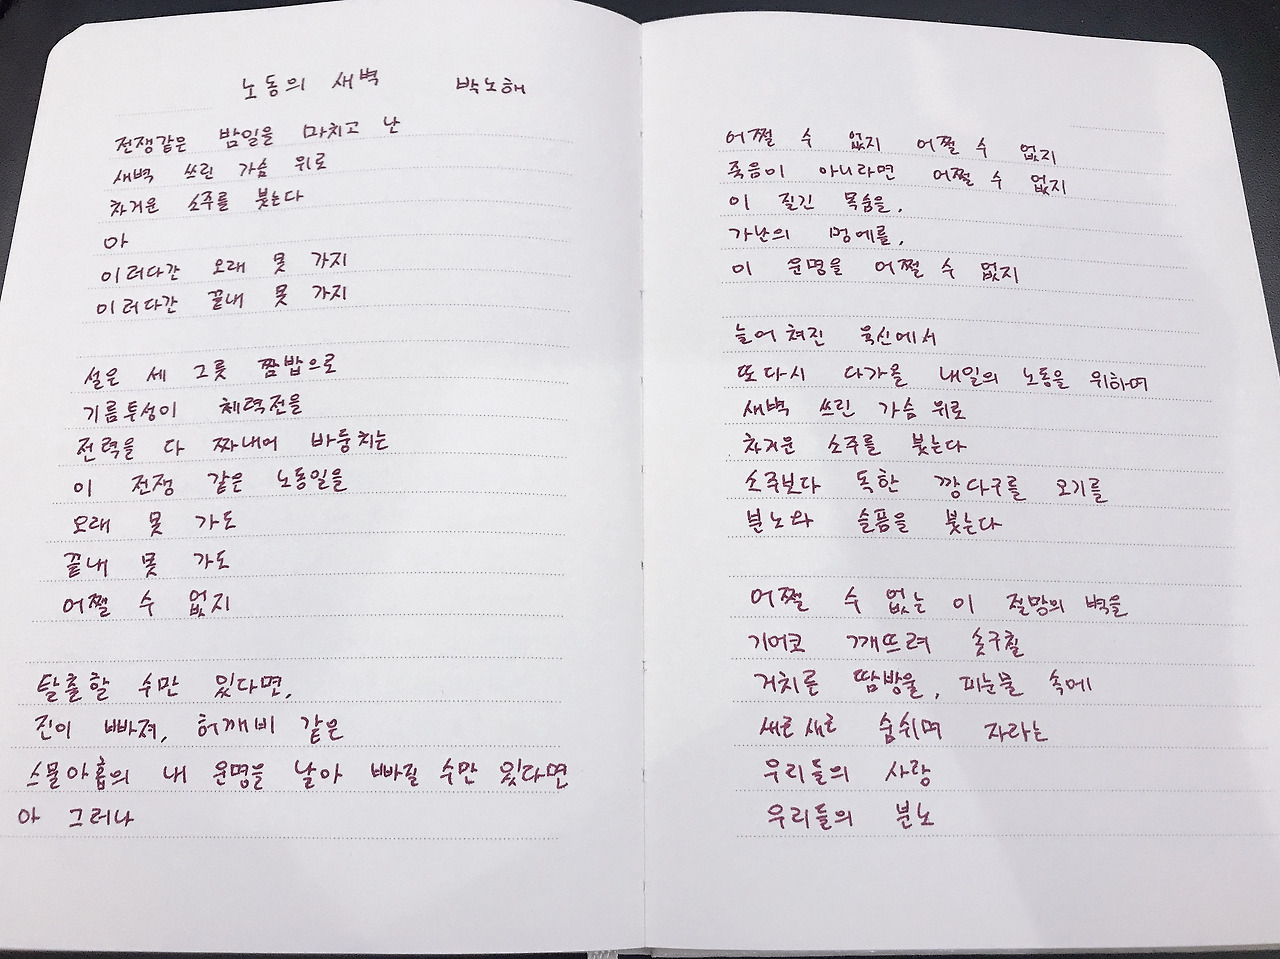 노동의 새벽 박노해
전쟁같은 밤일을 마치고 난
새벽 쓰린 가슴 위로
차거운 소주를 붓는다
아
이러다간 오래 못 가지
이러다간 끝내 못 가지
설은 세 그릇 짬밥으로
기름투성이 체력전을
전력을 다 짜내어 바둥치는
이 전쟁 같은 노동일을
오래 못 가도
끝내 못 가도
어쩔 수 없지
탈출할 수만 있다면,
진이 빠져, 허깨비 같은
스물아홉의 내 운명을 날아 빠질 수만 있다면
아 그러나
어쩔 수 없지 어쩔 수 없지
죽음이 아니라면 어쩔 수 없지
이 질긴 목숨을,
가난의 멍에를,
이 운명을 어쩔 수 없지
늘어쳐진 육신에서
또다시 다가올 내일의 노동을 위하여
새벽 쓰린 가슴 위로
차거운 소주를 붓는다
소주보다 독한 깡다구를 오기를
분노와 슬픔을 붓는다
어쩔 수 없는 이 절망의 벽을
기어코 깨뜨려 솟구칠
거치른 땀방울, 피눈물 속에
새로새로 숨쉬며 자라는
우리들의 사랑
우리들의 분노